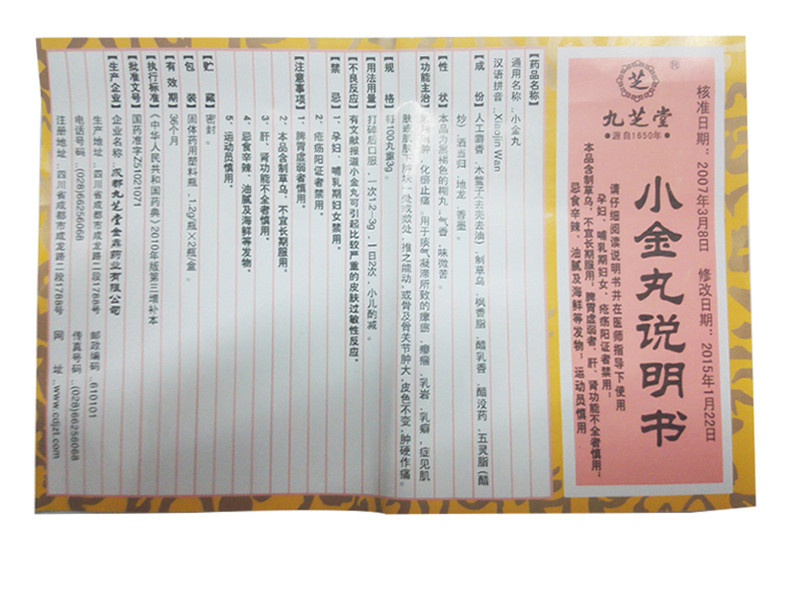 核准日期：2007年3月8日 修改日期：2015年1月22日
芝
®
九芝堂
源自1650年
小金丸说明书
请仔细阅读说明书并在医师指导下使用
孕妇、哺乳期妇女、疮疡阳证者禁用；
本品含制草乌，不宜长期服用；脾胃虚弱者、肝、肾功能不全者慎用；
忌食辛辣、油腻及海鲜等发物；运动员慎用
【药品名称】
通用名称：小金丸
汉语拼音：Xiaojin Wan
【成 份】人工麝香、木鳖子(去壳去油)、制草乌、枫香脂、醋乳香、醋没药、五灵脂(醋
炒)、酒当归、地龙、香墨。
【性 状】本品为黑褐色的糊丸；气香，味微苦。
【功能主治】肿，化瘀止痛。用于痰气凝滞所致的瘰疬、瘿瘤、乳岩、乳癖，症见肌
肤或肌肤下肿块一处或数处，推之能动，或骨及骨关节肿大，皮色不变，肿硬作痛。
【规 格】每100丸重3g。
【用法用量】打碎后口服。一次1.2—3g，一日2次，小儿酌减。
【不良反应】有文献报道小金丸可引起比较严重的皮肤过敏性反应。
【禁 忌】1、孕妇、哺乳期妇女禁用。
2、疮疡阳证者禁用。
【注意事项】1、脾胃虚弱者慎用。
2、本品含制草乌，不宜长期服用。
3、肝、肾功能不全者慎用。
4、忌食辛辣、油腻及海鲜等发物。
5、运动员慎用。
【贮 藏】密封。
【包 装】固体药用塑料瓶，1.2g/瓶×2瓶/盒。
【有 效 期】36个月
【执行标准】《中华人民共和国药典》2010年版第三增补本
【批准文号】国药准字Z51021071
【生产企业】企业名称：成都九芝堂金鼎药业有限公司
生产地址：四川省成都市成龙路二段1788号 邮政编码：610101
电话号码：(028)66256068 传真号码：(028)66256068
注册地址：四川省成都市成龙路二段1788号 网 址：www.cdjzt.com